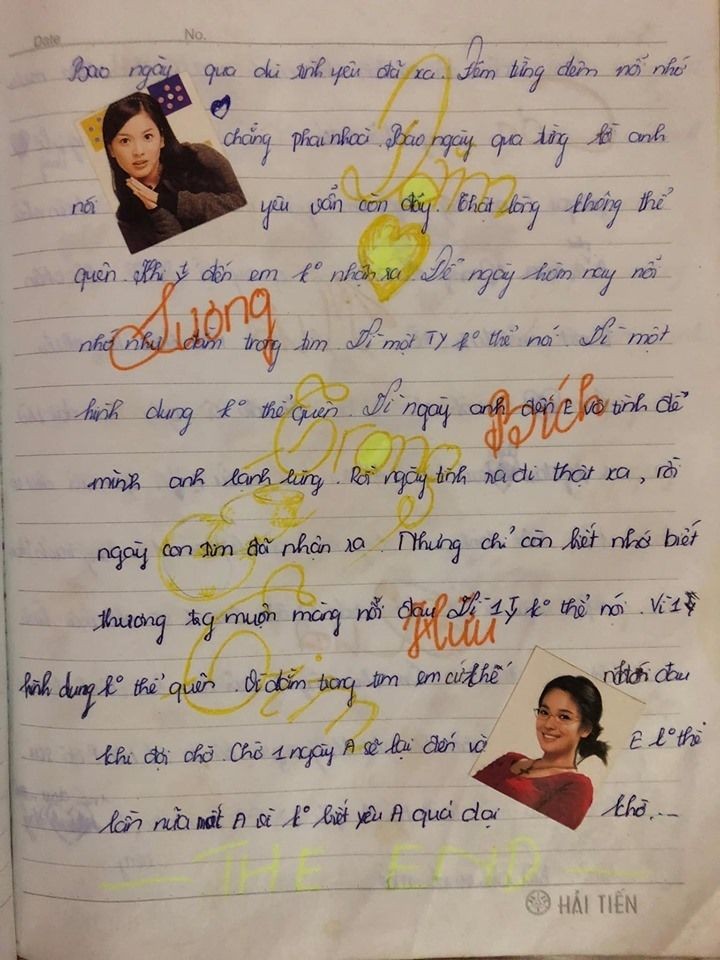 Date No.
Bao ngày qua dù tình yêu đã xa. Đêm từng đêm nỗi nhớ
chẳng phai nhoà. Bao ngày qua từng lời anh
nói yêu vẫn còn đấy. Thật lòng không thể
quên. Khi ty đến em ko nhận ra. Để ngày hôm nay nỗi
nhớ như dằm trong tim. Vì một Ty ko thể nói. Vì một
hình dung ko thể quên. Vì ngày anh đến E vô tình để
mình anh lạnh lùng. Rồi ngày tình ra đi thật xa, rồi
ngày con tim đã nhận ra. Nhưng chỉ còn biết nhớ biết
thương tg muộn màng nỗi đau. Vì 1 Ty ko thể nói. Vì 1
hình dung ko thể quên. Vì dằm trong tim em cứ thế nhói đau
khi đợi chờ. Chờ 1 ngày A sẽ lại đến và E ko thể
lần nữa mất A vì ko biết yêu A quá dại khờ...
Dằm
Trong
Tim
Lương
Bích
Hữu
THE END
HẢI TIẾN